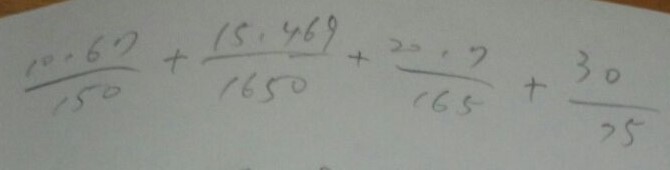 10.67/150 + 15.469/1650 + 20.7/165 + 30/75